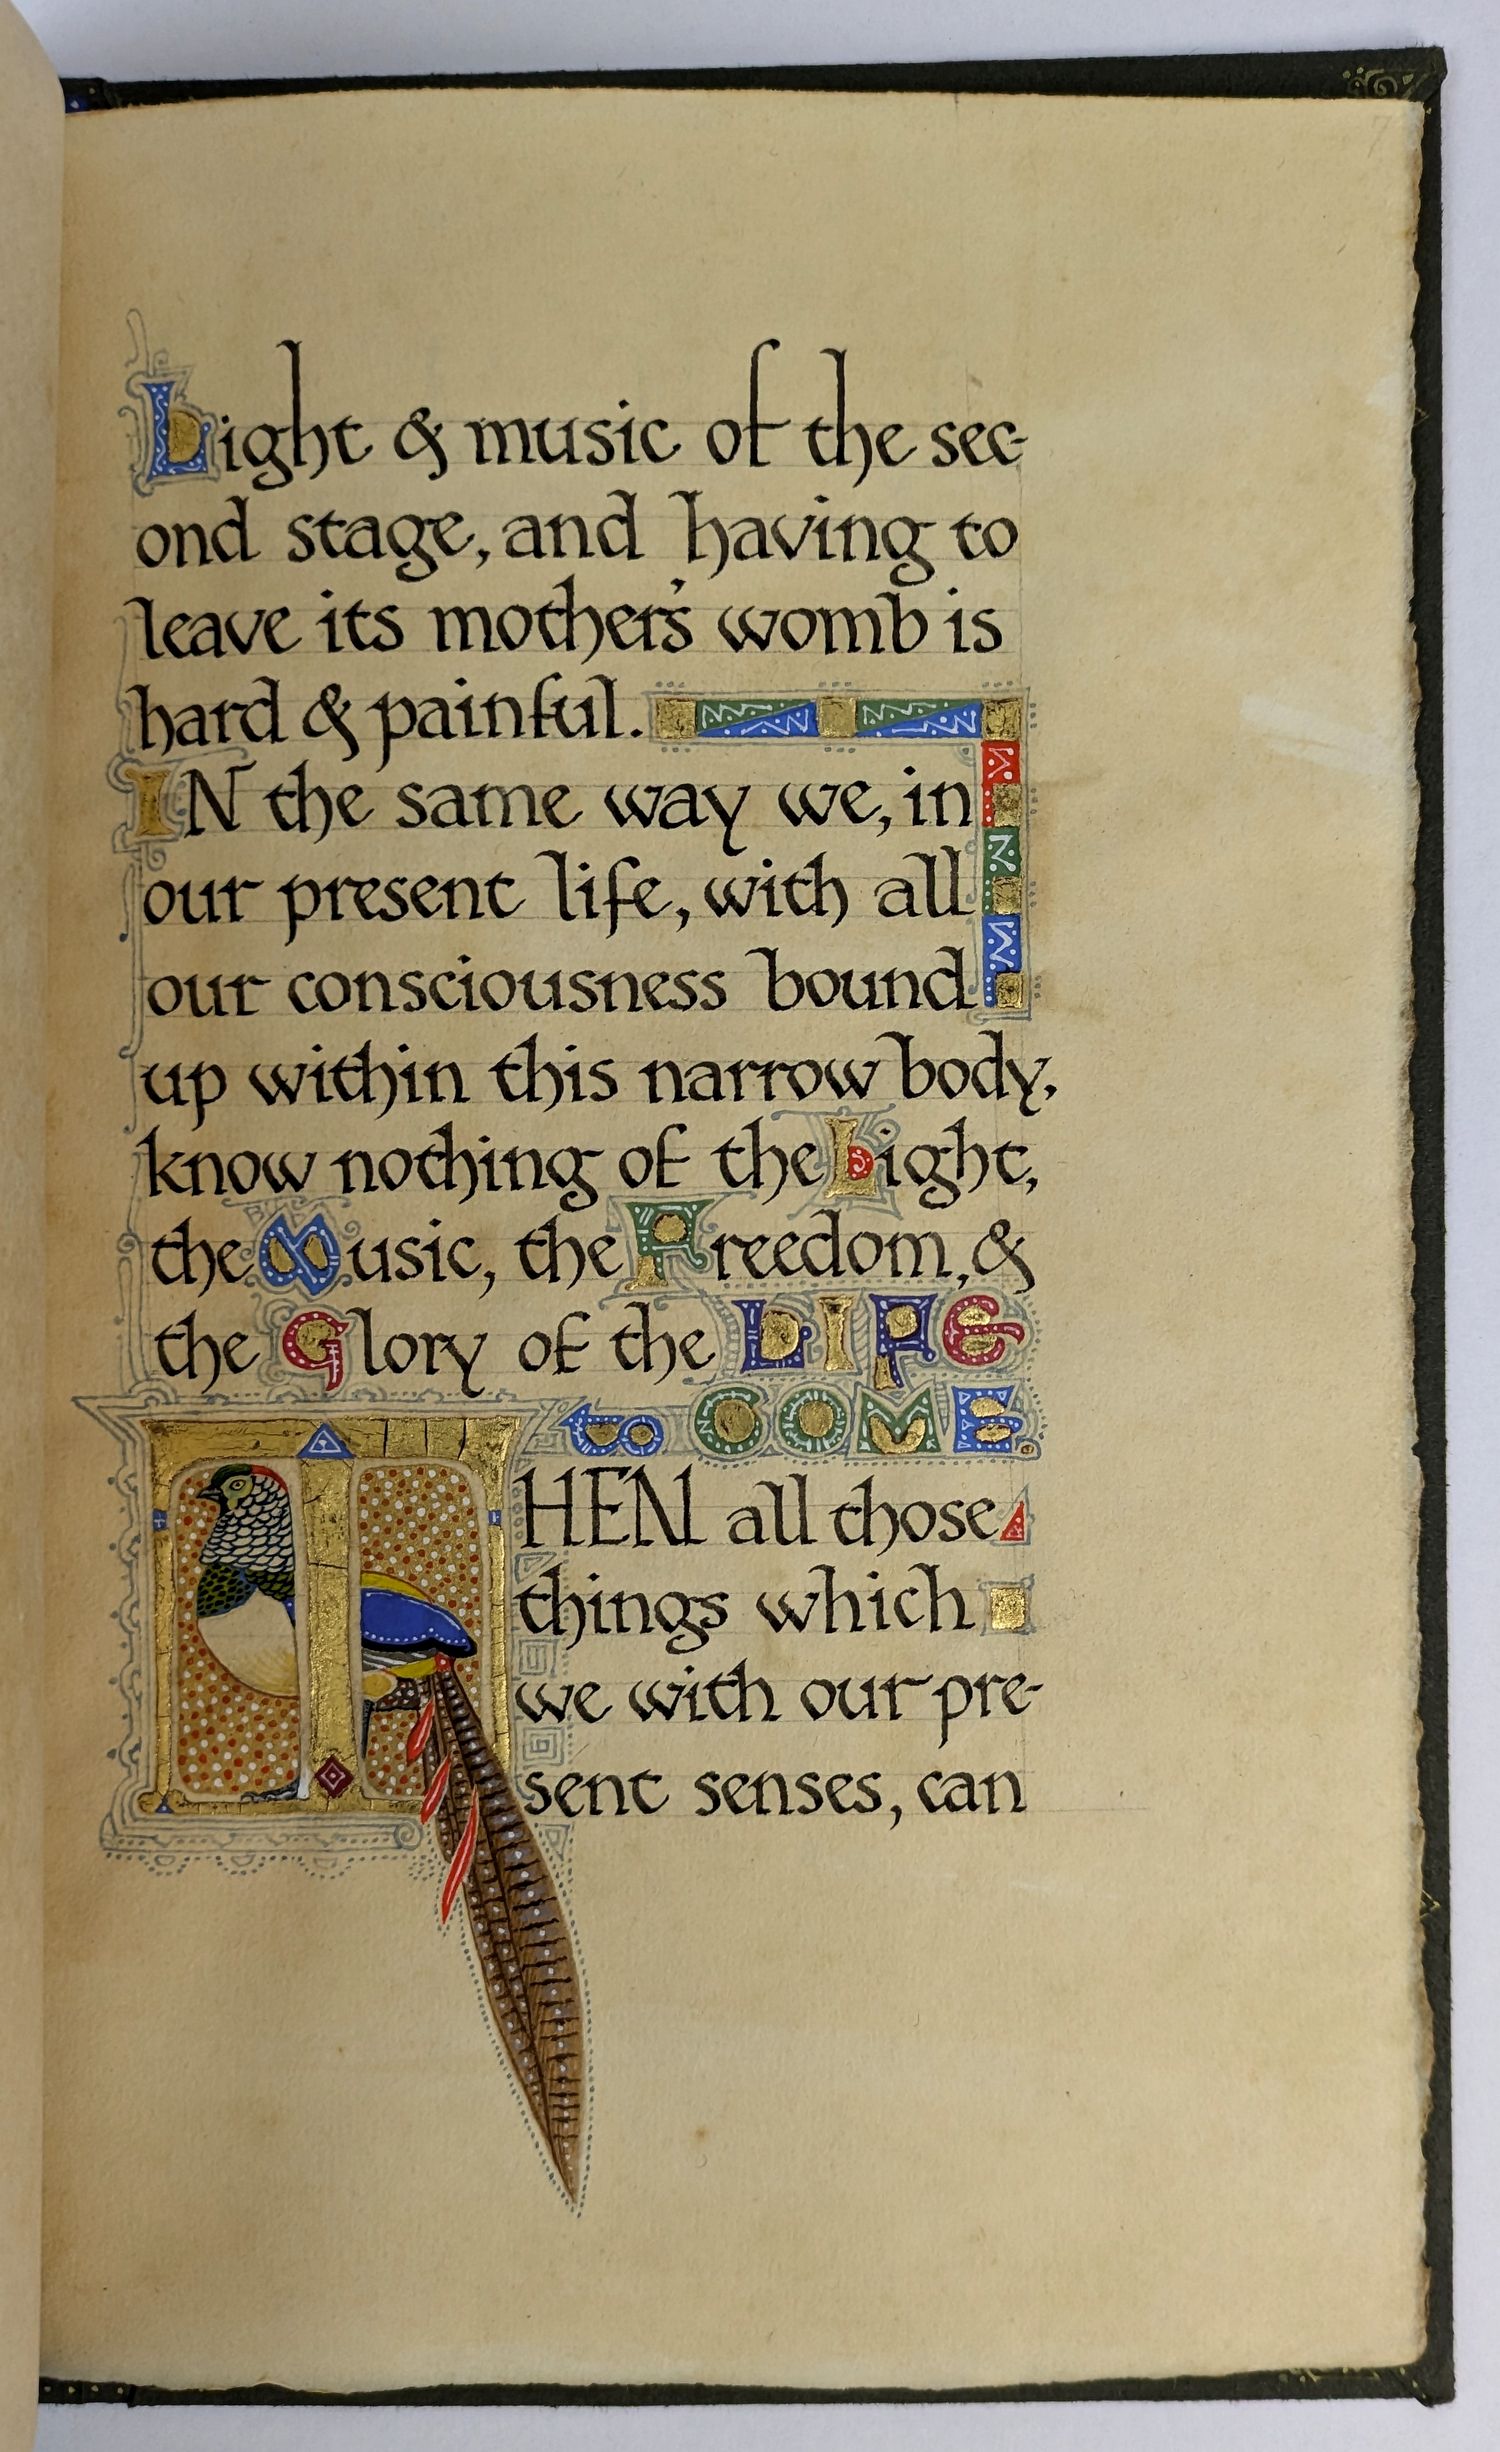 Light & music of the sec-
ond stage, and having to
leave its mother's womb is
hard & painful.
IN the same way we, in
our present life, with all
our consciousness bound
up within this narrow body,
know nothing of the Light,
the Music, the Freedom, &
the Glory of the LIFE
to COME.
THEN all those
things which
we with our pre-
sent senses, can
7